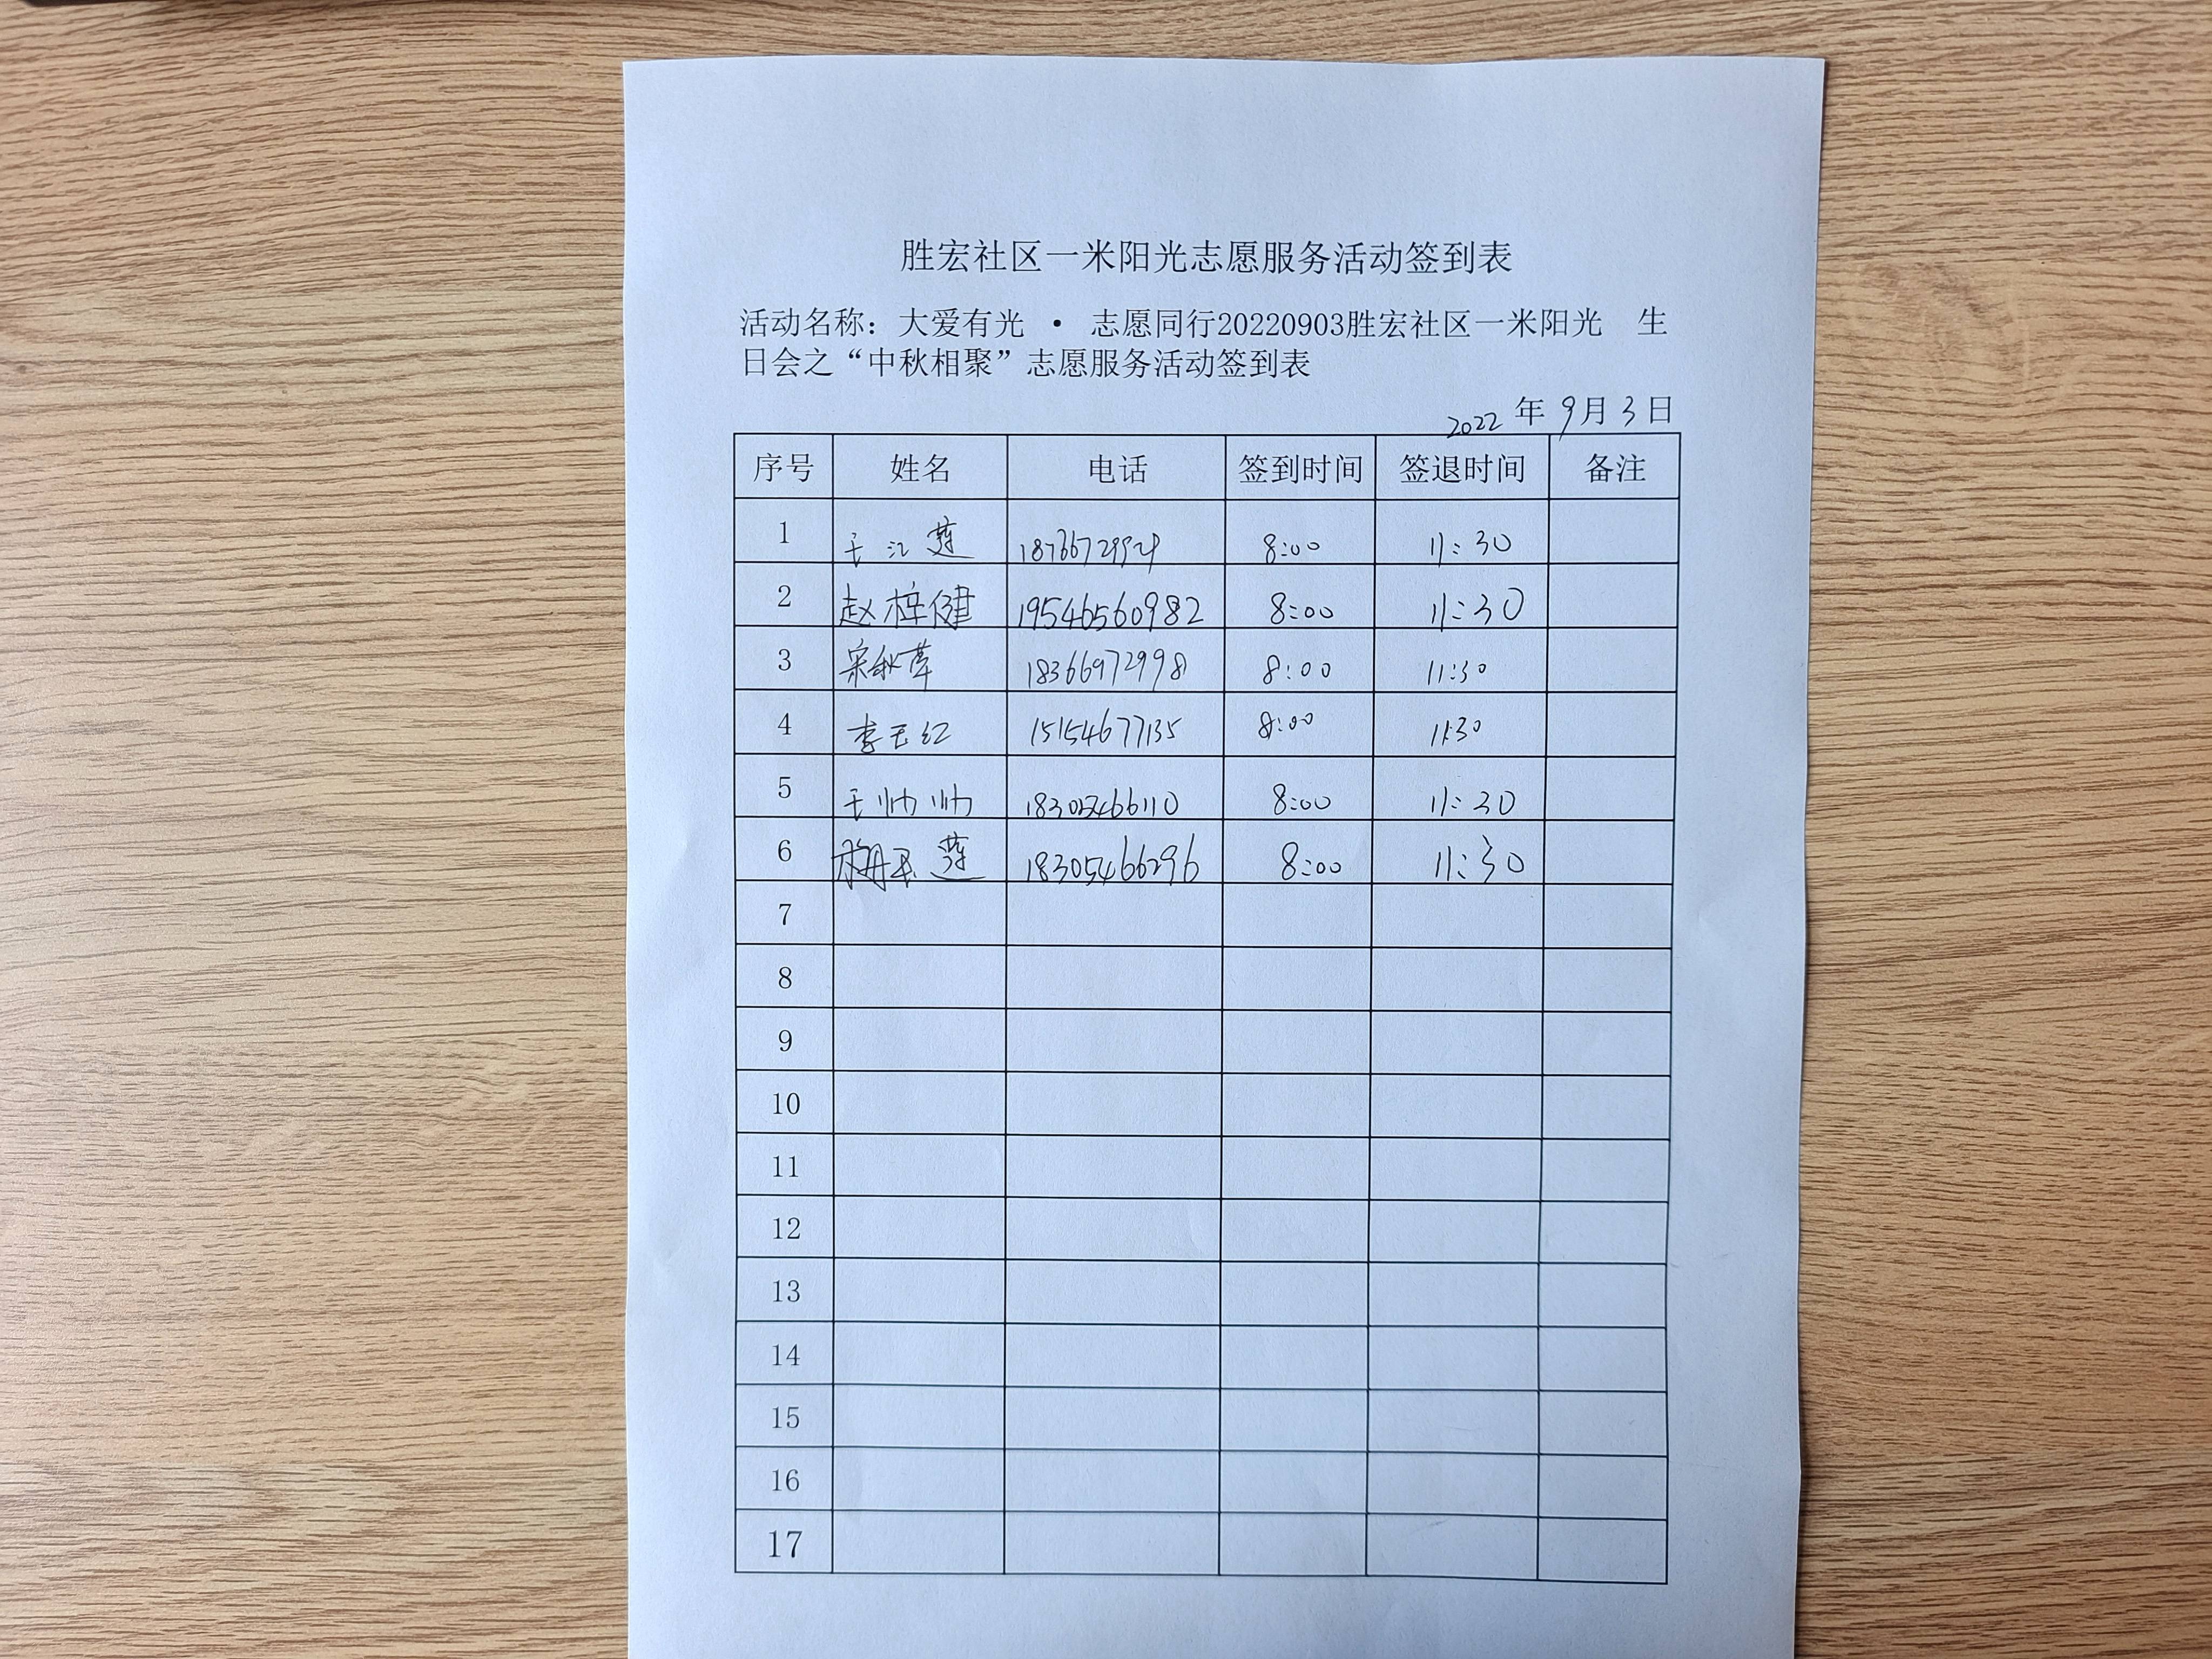 胜宏社区一米阳光志愿服务活动签到表
活动名称：大爱有光 • 志愿同行20220903胜宏社区一米阳光 生
日会之“中秋相聚”志愿服务活动签到表
2022年9月3日
序号 姓名 电话 签到时间 签退时间 备注
1 王江莲 8:00 11:30
2 赵梓健 19546560982 8:00 11:30
3 宋秋萍 18366972998 8:00 11:30
4 李玉红 15154677135 8:00 11:30
5 王帅帅 18305466110 8:00 11:30
6 莲 18305466296 8:00 11:30
7
8
9
10
11
12
13
14
15
16
17